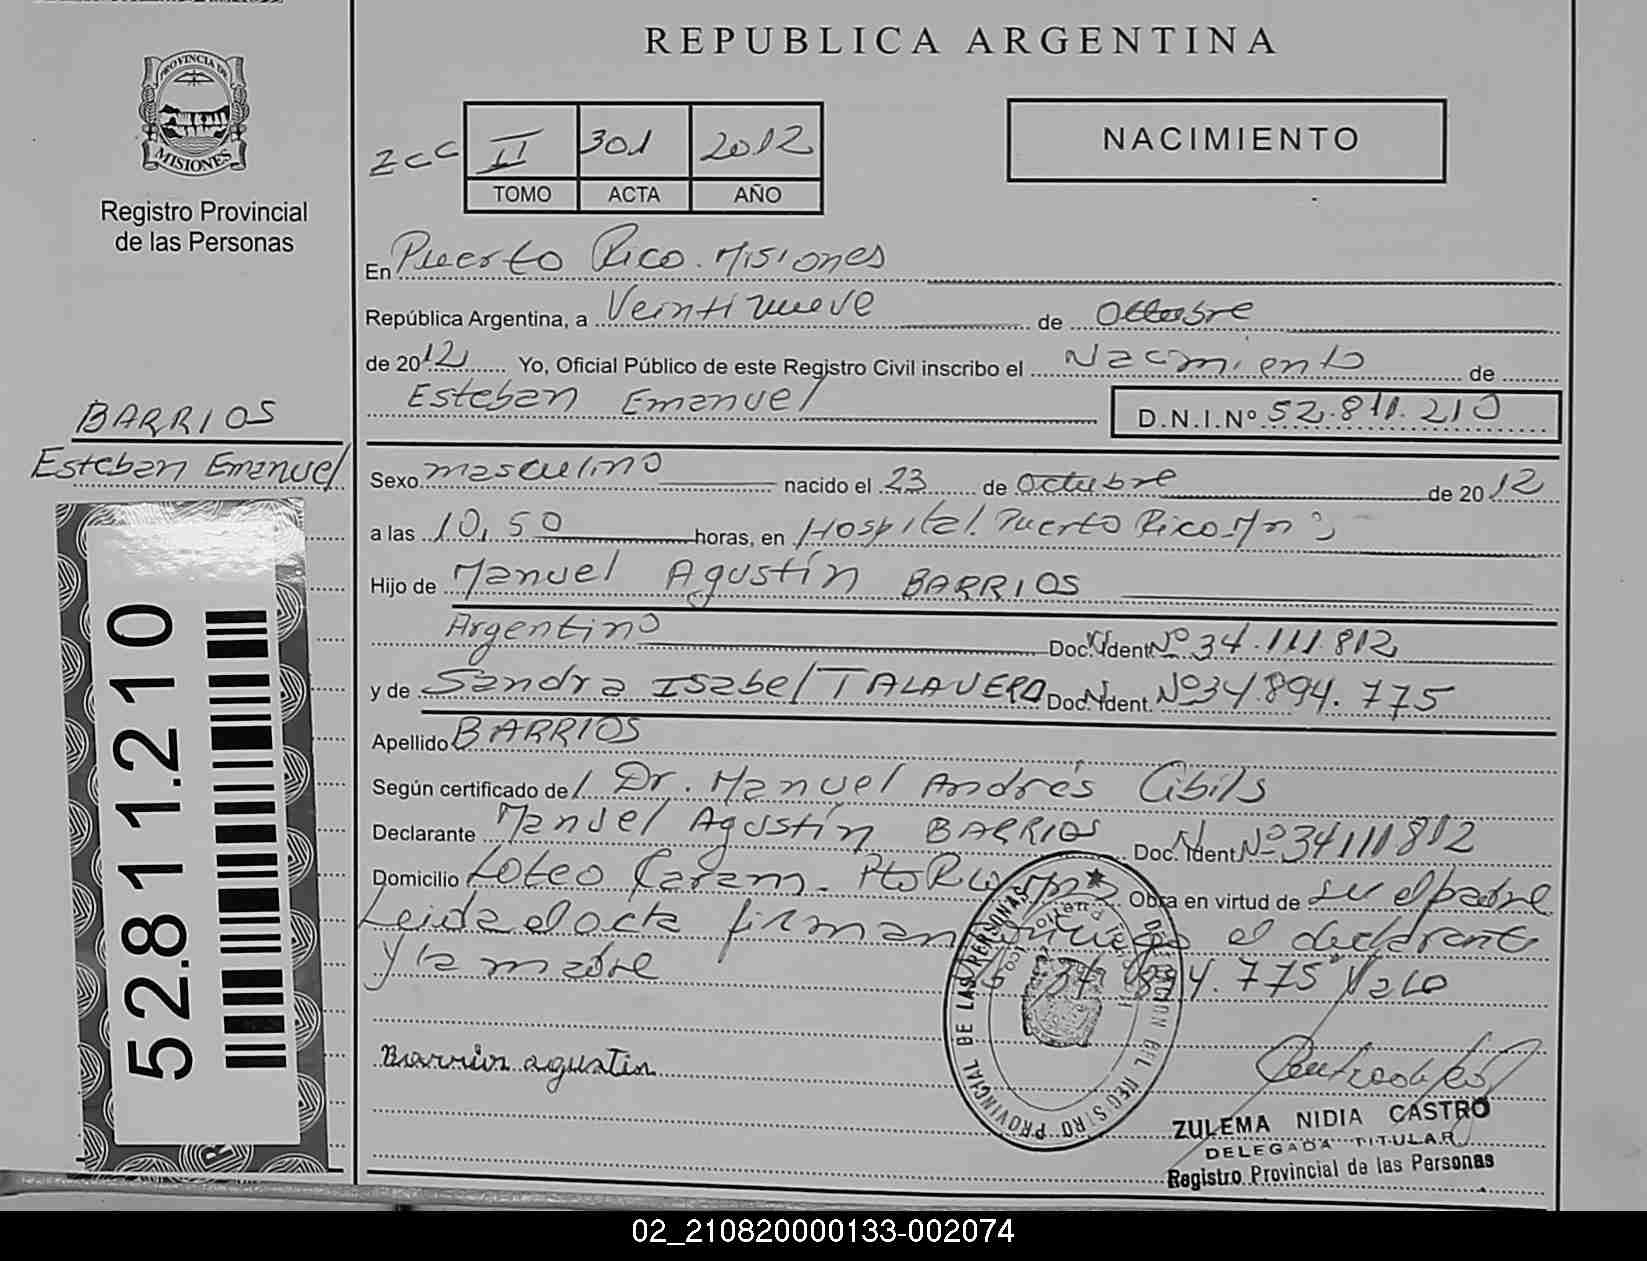 REPUBLICA ARGENTINA
PROVINCIA DE
MISIONES
Registro Provincial
de las Personas
zcc II 301 2012
TOMO ACTA AÑO
NACIMIENTO
En Puerto Rico. Misiones
República Argentina, a Veintinueve de Octubre
de 2012 Yo, Oficial Público de este Registro Civil inscribo el Nacimiento de
Esteban Emanuel
D.N.I.Nº 52.811.210
BARRIOS
Esteban Emanuel
Sexo masculino nacido el 23 de Octubre de 2012
a las 10,50 horas, en Hospital. Puerto Rico. Mns
Hijo de Manuel Agustín BARRIOS
Argentino Doc. Ident. Nº 34.111.812
y de Sandra Isabel TALAVERA Doc. Ident. Nº 34.894.775
Apellido BARRIOS
Según certificado de l. Dr. Manuel Andrés Cibils
Declarante Manuel Agustín BARRIOS Doc. Ident. Nº 34111812
Domicilio Loteo Karam. Pto Rico Mns Obra en virtud de ser el padre
Leida el acta firman conmigo el declarante
y la madre 34.894.775 Vale
Barrios agustin
REGISTRO PROVINCIAL DE LAS PERSONAS
DELEGACION DEL
PUERTO RICO
ZULEMA NIDIA CASTRO
DELEGADA TITULAR
Registro Provincial de las Personas
52.811.210
02_210820000133-002074